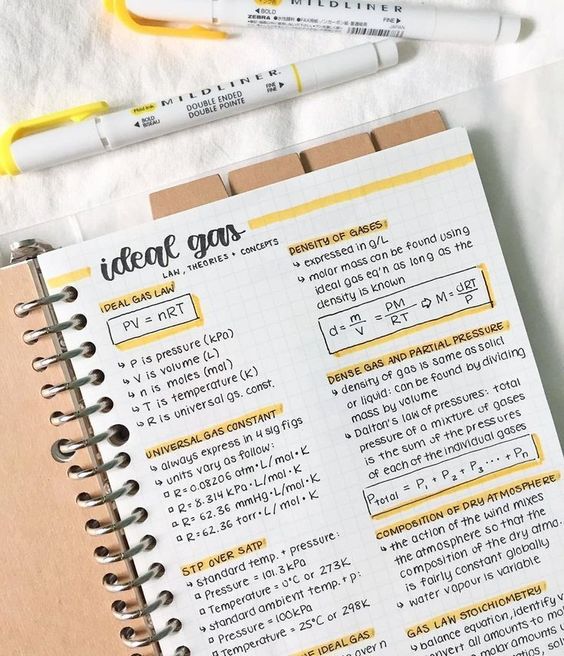 BOLD
FINE
ZEBRA
MILDLINER
MILDLINER.
DOUBLE ENDED
DOUBLE POINTE
Mild ink
BOLD
BISEAU
FINE
FINE
ideal gas
LAW, THEORIES + CONCEPTS
IDEAL GAS LAW
PV = nRT
↳ P is pressure (kPa)
↳ V is volume (L)
↳ n is moles (mol)
↳ T is temperature (K)
↳ R is universal gs. const.
UNIVERSAL GAS CONSTANT
↳ always express in 4 sig figs
↳ units vary as follow:
▫ R= 0.08206 atm·L/mol·K
▫ R= 8.314 kPa·L/mol·K
▫ R= 62.36 mmHg·L/mol·K
▫ R= 62.36 torr·L/mol·K
STP OVER SATP
↳ standard temp. + pressure:
▫ Pressure = 101.3 kPa
▫ Temperature = 0°C or 273K
↳ standard ambient temp. + p:
▫ Pressure = 100kPa
▫ Temperature = 25°C or 298K
THE IDEAL GAS
DENSITY OF GASES
↳ expressed in g/L
↳ molar mass can be found using
ideal gas eq'n as long as the
density is known
d = m/V = PM/RT ⇨ M = dRT/P
DENSE GAS AND PARTIAL PRESSURE
↳ density of gas is same as solid
or liquid: can be found by dividing
mass by volume
↳ Dalton's law of pressures: total
pressure of a mixture of gases
is the sum of the pressures
of each of the individual gases
Ptotal = P1 + P2 + P3 ... + Pn
COMPOSITION OF DRY ATMOSPHERE
↳ the action of the wind mixes
the atmosphere so that the
composition of the dry atmo.
is fairly constant globally
↳ water vapour is variable
GAS LAW STOICHIOMETRY
↳ balance equation, identify
convert all amounts to
molar amounts